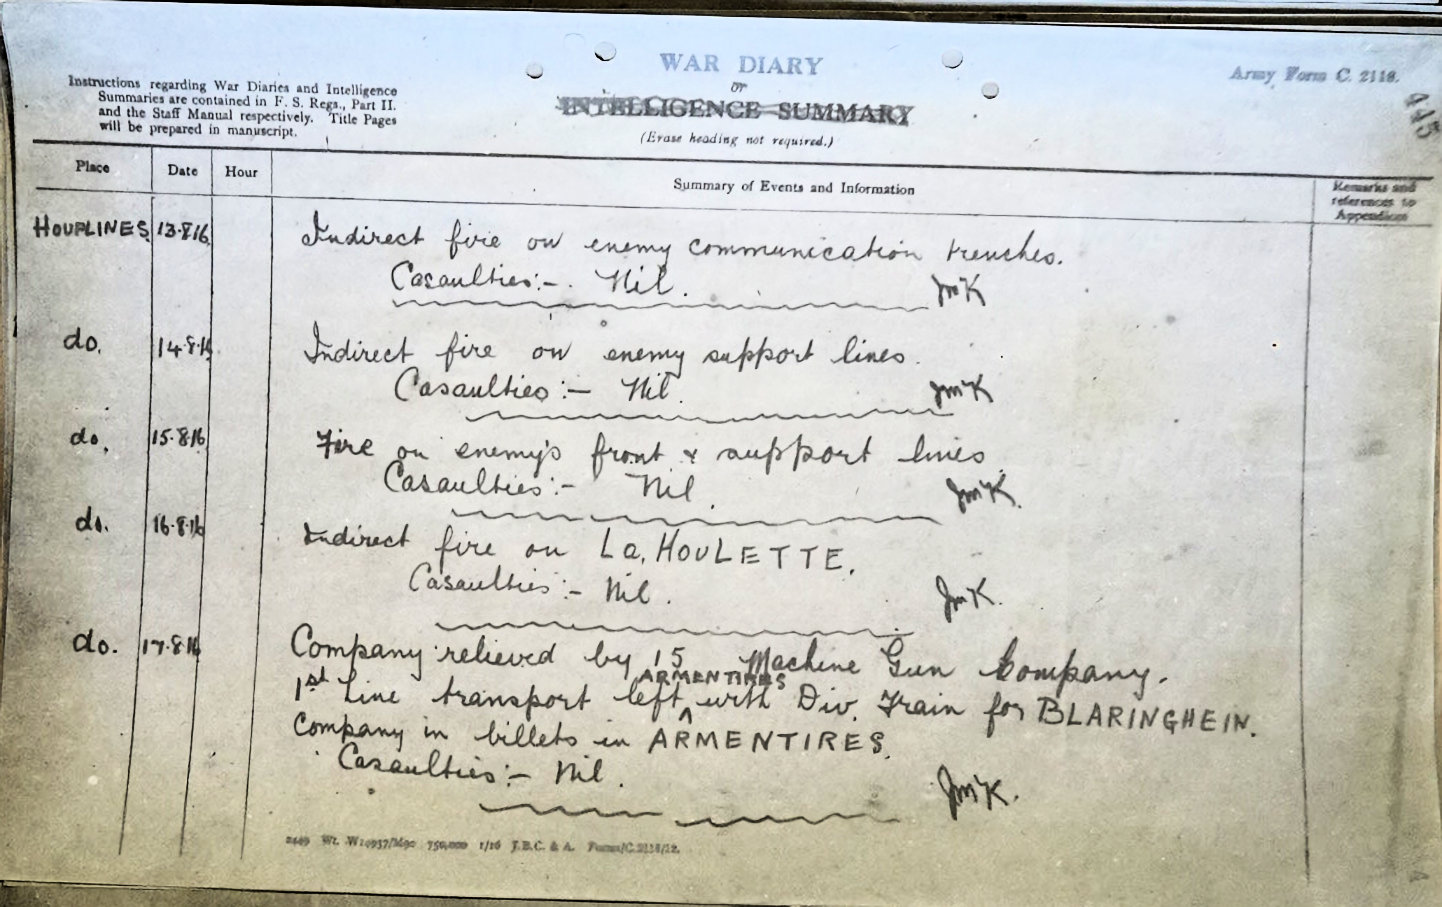 WAR DIARY
or
INTELLIGENCE SUMMARY
(Erase heading not required.)
Army Form C. 2118.
445
Instructions regarding War Diaries and Intelligence
Summaries are contained in F. S. Regs., Part II.
and the Staff Manual respectively. Title Pages
will be prepared in manuscript.
Place Date Hour Summary of Events and Information Remarks and
references to
Appendices
HOUPLINES 13.8.16 Indirect fire on enemy communication trenches.
Casaulties:- Nil. JmK
do. 14.8.16 Indirect fire on enemy support lines.
Casaulties:- Nil. JmK
do. 15.8.16 Fire on enemy's front & support lines.
Casaulties:- Nil. JmK.
do. 16.8.16 Indirect fire on La, HOULETTE.
Casaulties:- Nil. JmK.
do. 17.8.16 Company relieved by 15 Machine Gun Company.
ARMENTIRES
1st Line transport left ^ with Div. Train for BLARINGHEIN.
Company in billets in ARMENTIRES.
Casaulties:- Nil. JmK.
2449 Wt. W14957/M90 750,000 1/16 J.B.C. & A. Forms/C.2118/12.